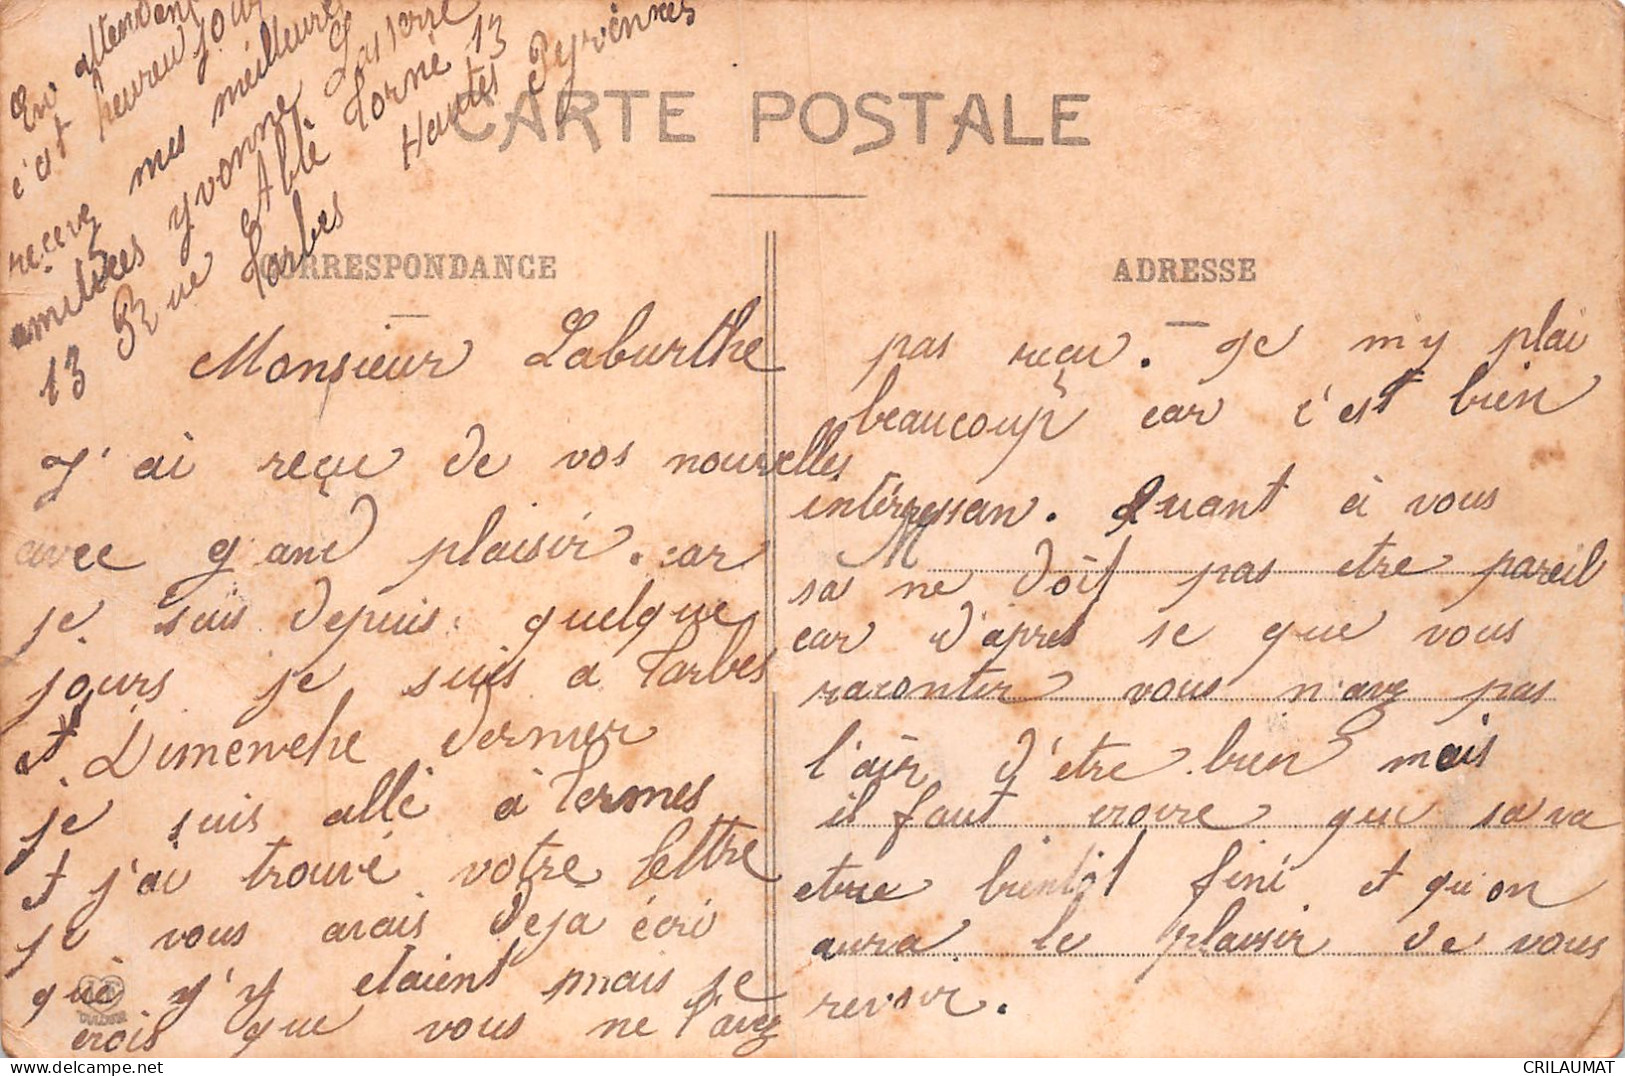 CARTE POSTALE
CORRESPONDANCE
ADRESSE
Monsieur Laburthe
J'ai reçu de vos nouvelles
avec grand plaisir. car
je suis depuis quelque
jours je suis a Tarbes
et Dimenche dernier
je suis allé à Termes
et j'ai trouvé votre lettre
je vous avais deja écri
que j'y etaient mais je
crois que vous ne l'avez
pas reçu. Je m'y plai
beaucoup car c'est bien
intérressan. Quant à vous
M
sa ne doit pas etre pareil
car d'après se que vous
raconter vous n'avez pas
l'air d'être bien mais
il faut croire que sa va
etre bientôt fini et qu'on
aura le plaisir de vous
revoir.
En attendant
c'et heureu jour
recevez mes meilleures
amitiées Yvonne Lasserre
13 Rue Abbé Torné 13
Tarbes Hautes Pyrénnés
CRILAUMAT